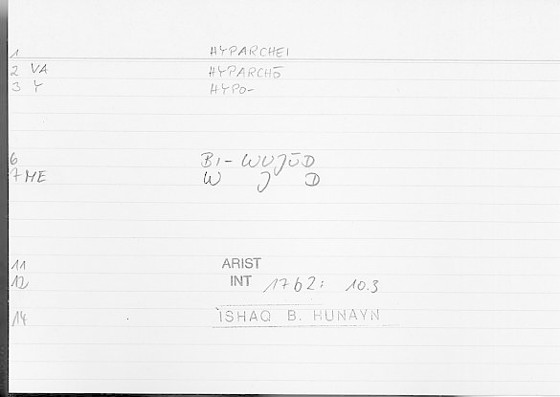 1 HYPARCHEI
2 VA HYPARCHŌ
3 Y HYPO-
6 BI-WUJŪD
7 ME W J D
11 ARIST
12 INT 17b2: 10.3
14 ISHAQ B. HUNAYN